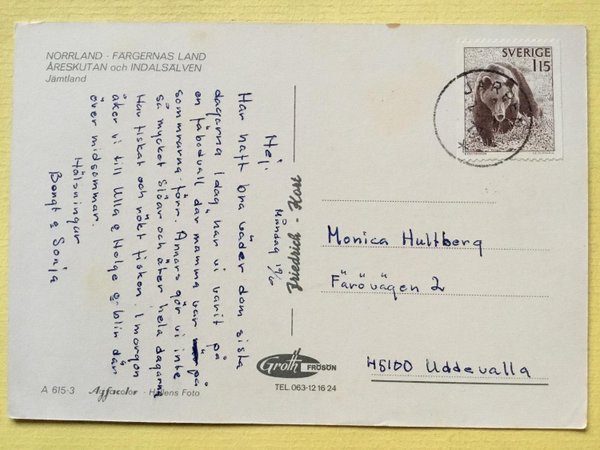 NORRLAND · FÄRGERNAS LAND
ÅRESKUTAN och INDALSÄLVEN
Jämtland
SVERIGE
115
Måndag 19/6
Hej.
Har haft bra väder dom sista
dagarna. Idag har vi varit på
en fäbodvall där mamma var på
somrarna förr. Annars gör vi inte
så mycket. Slöar och äter hela dagarna
Har fiskat och rökt fisken. I morgon
åker vi till Ulla & Helge o. blir där
över midsommar.
Hälsningar
Bengt & Sonja
Monica Hultberg
Färövägen 2
45100 Uddevalla
Groth
FRÖSÖN
TEL. 063-12 16 24
A 615-3 Agfacolor · Hallens Foto